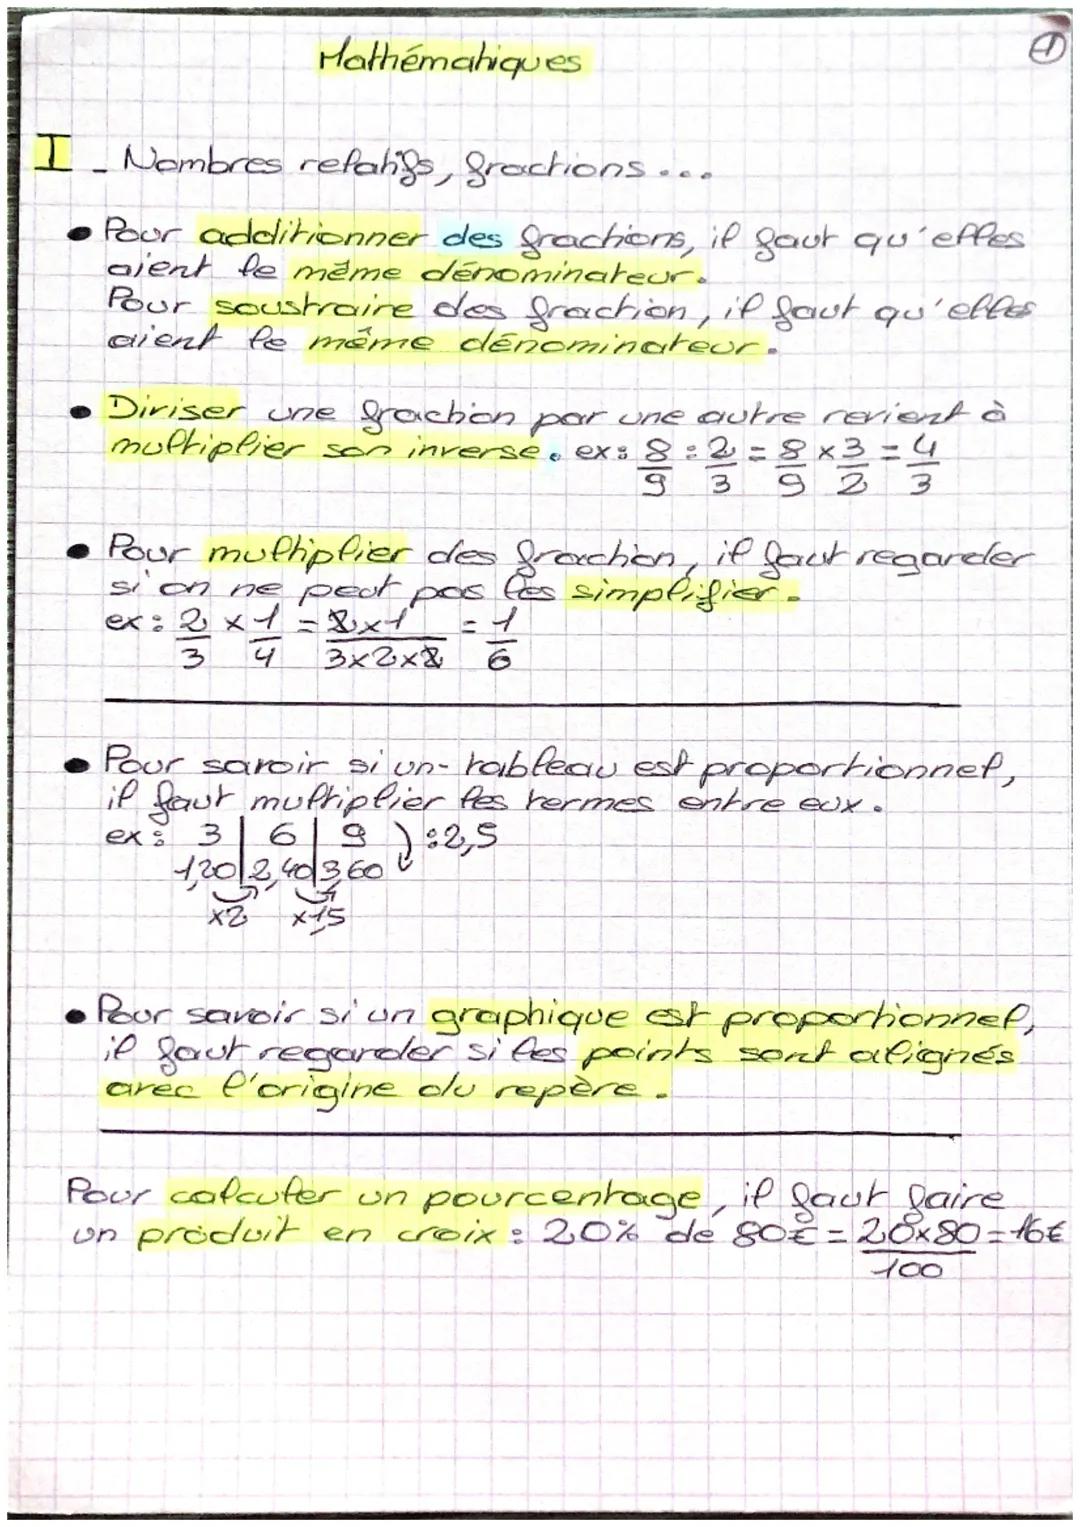 Mathématiques
1
I - Nombres relatifs, fractions...
• Pour additionner des fractions, il faut qu'elles
aient le même dénominateur.
Pour soustraire des fraction, il faut qu'elles
aient le même dénominateur.
• Diviser une fraction par une autre revient à
multiplier son inverse. ex: 8/9 : 2/3 = 8/9 x 3/2 = 4/3
• Pour multiplier des fraction, il faut regarder
si on ne peut pas les simplifier.
ex: 2/3 x 1/4 = 2x1/3x2x2 = 1/6
• Pour savoir si un tableau est proportionnel,
il faut multiplier les termes entre eux.
ex: 3 | 6 | 9 ) :2,5
1,20 | 2,40 | 3,60
x2 x1,5
• Pour savoir si un graphique est proportionnel,
il faut regarder si les points sont alignés
avec l'origine du repère.
Pour calculer un pourcentage, il faut faire
un produit en croix : 20% de 80€ = 20x80/100 = 16€